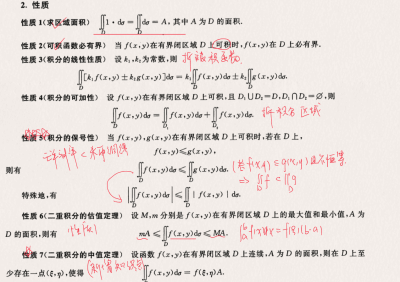 2. 性质
性质1(求区域面积) ∬_D 1·dσ = ∬_D dσ = A, 其中 A 为 D 的面积.
性质2(可积函数必有界) 当 f(x,y)在有界闭区域 D 上可积时,f(x,y)在 D 上必有界.
性质3(积分的线性性质) 设 k₁,k₂为常数,则
∬_D [k₁f(x,y)±k₂g(x,y)]dσ = k₁∬_D f(x,y)dσ ± k₂∬_D g(x,y)dσ.
性质4(积分的可加性) 设 f(x,y)在有界闭区域 D 上可积,且 D₁∪D₂=D,D₁∩D₂=∅,则
∬_D f(x,y)dσ = ∬_D₁ f(x,y)dσ + ∬_D₂ f(x,y)dσ. 拆积分区域
性质5(积分的保号性) 当 f(x,y),g(x,y)在有界闭区域 D 上可积时,若在 D 上,
f(x,y)≤g(x,y),
则有 ∬_D f(x,y)dσ ≤ ∬_D g(x,y)dσ. (若f(x,y)≤g(x,y)且不恒等
⇒ ∬_D f < ∬_D g
特殊地,有 |∬_D f(x,y)dσ| ≤ ∬_D |f(x,y)|dσ.
性质6(二重积分的估值定理) 设 M,m 分别是 f(x,y)在有界闭区域 D 上的最大值和最小值,A 为
D 的面积,则有 mA ≤ ∬_D f(x,y)dσ ≤ MA. ∫_a^b f(x)dx=f(ξ)(b-a)
性质7(二重积分的中值定理) 设函数 f(x,y)在有界闭区域 D 上连续,A 为 D 的面积,则在 D 上至
少存在一点(ξ,η),使得 ∬_D f(x,y)dσ = f(ξ,η)A.